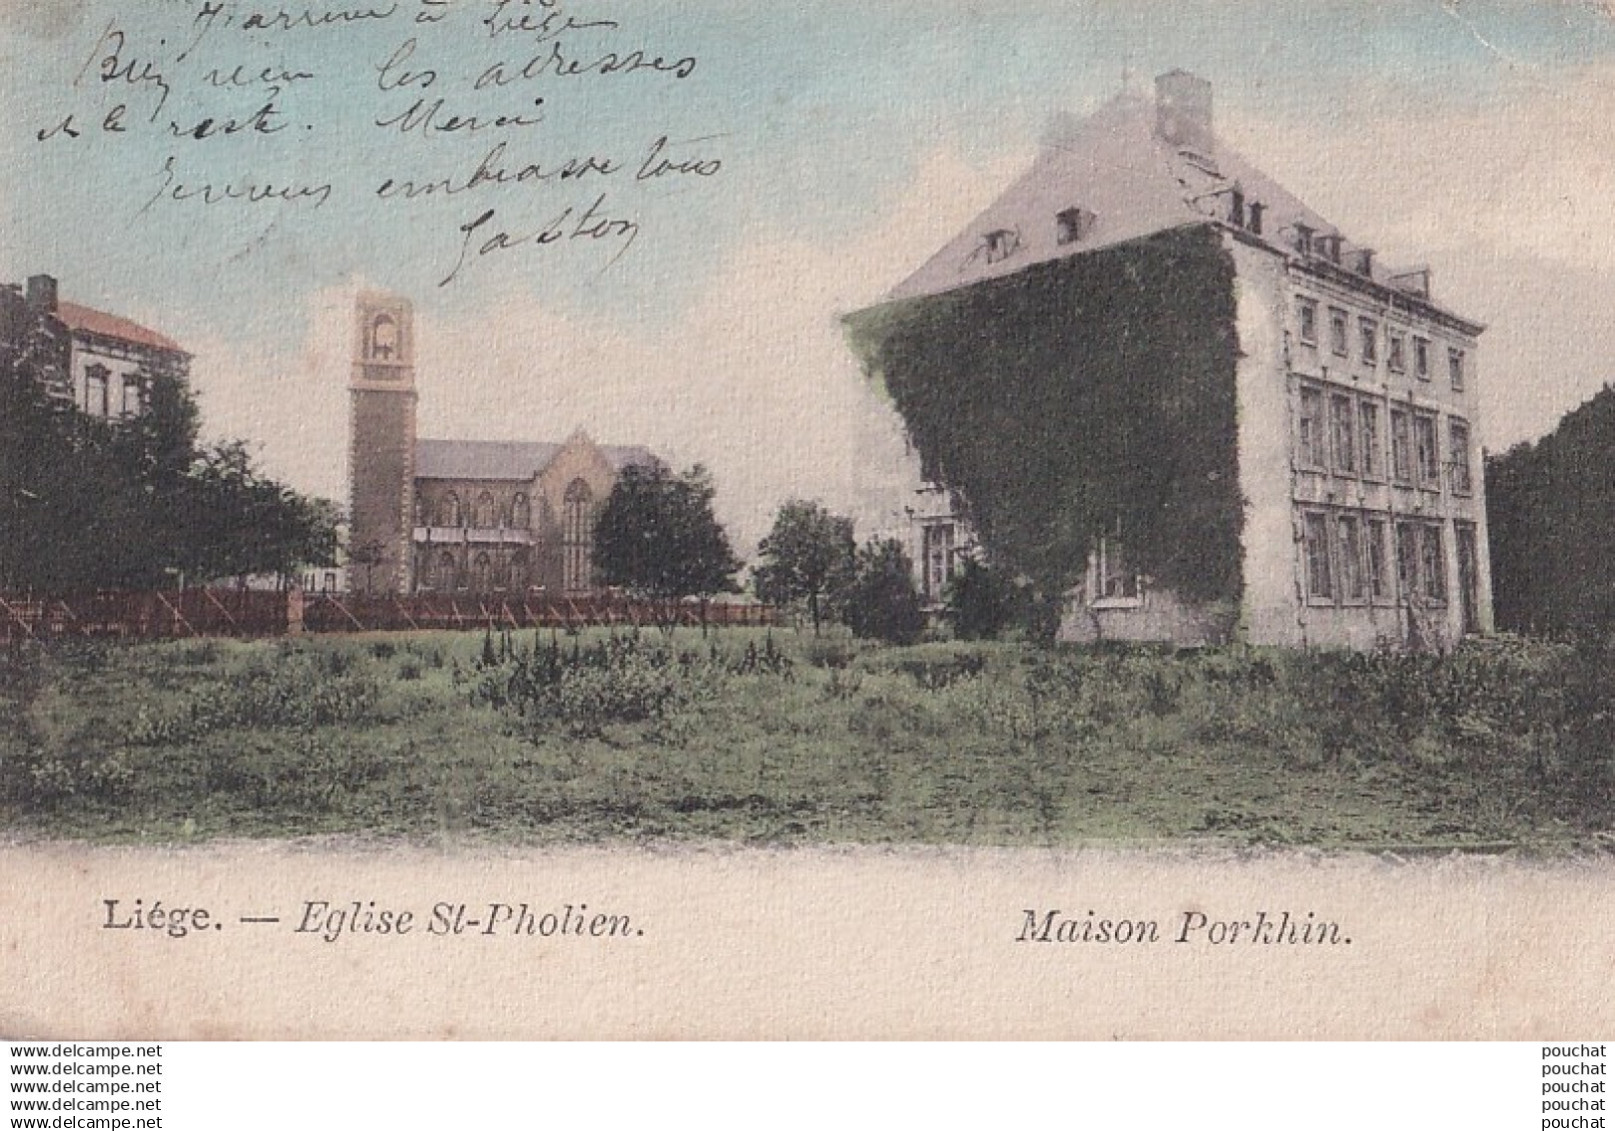 J'arrive à Liège
Bien reçu les adresses
et le reste. Merci
Je vous embrasse tous
Gaston
Liége. — Eglise St-Pholien. Maison Porkhin.
www.delcampe.net pouchat
www.delcampe.net pouchat
www.delcampe.net pouchat
www.delcampe.net pouchat
www.delcampe.net pouchat